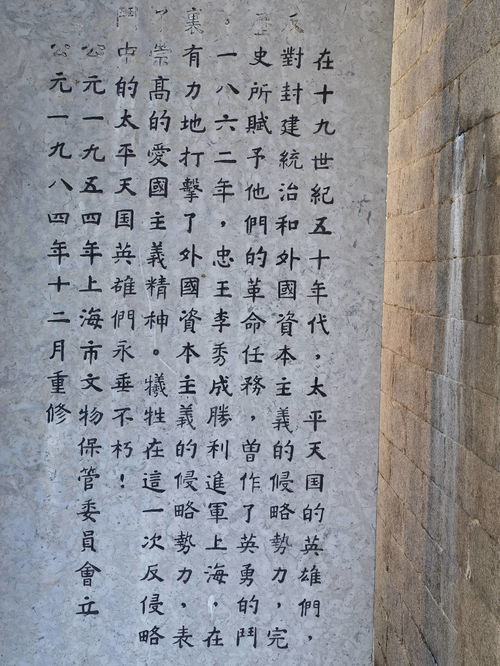 在十九世紀五十年代，太平天国的英雄們，
反對封建統治和外國資本主義的侵略勢力，完
史所賦予他們的革命任務，曾作了英勇的鬥
。一八六二年，忠王李秀成勝利進軍上海，在
裏有力地打擊了外國資本主義的侵略勢力，表
了崇高的愛國主義精神。犧牲在這一次反侵略
鬥中的太平天国英雄們永垂不朽！
公元一九五四年上海市文物保管委員會立
公元一九八四年十二月重修